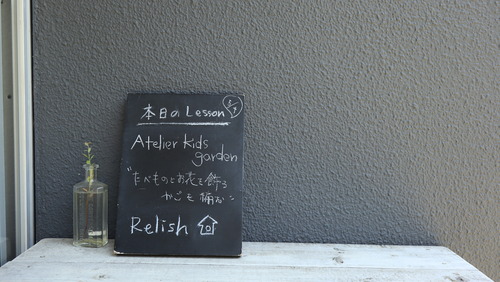 本日の Lesson 5/7
Atelier kids
garden
"たべものとお花を飾る
かごを編む"
Relish